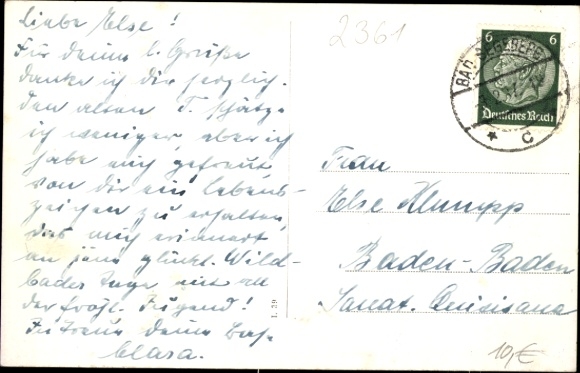 Liebe Else!
Für deine l. Grüße
danke ich dir herzlich.
Den alten T. schätze
ich weniger, aber ich
habe mich gefreut,
von dir ein Lebens-
zeichen zu erhalten,
das mich erinnert
an jene glückl. Wild-
bader Tage mit all
der fröhl. Jugend!
In Treue Deine
Clara.
2361
6 6
BAD SEGEBERG
Deutsches Reich
* C
Frau
Else Klumpp
Baden-Baden
Sanat. Quisisana
I. 29
10,€